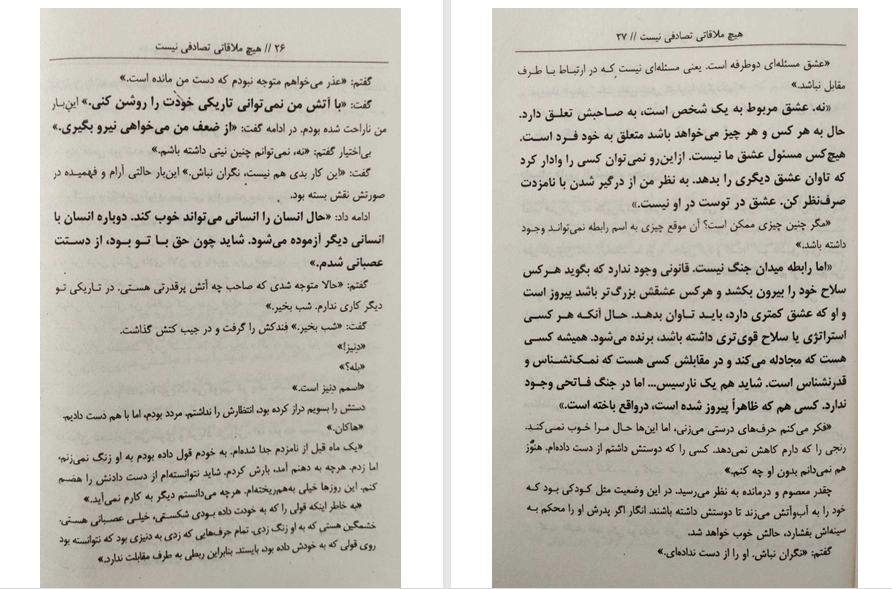 ۲۶ // هیچ ملاقاتی تصادفی نیست
گفتم: «عذر می‌خواهم متوجه نبودم که دست من مانده است.»
گفت: «با آتش من نمی‌توانی تاریکی خودت را روشن کنی.» این‌بار
من ناراحت شده بودم. در ادامه گفت: «از ضعف من می‌خواهی نیرو بگیری.»
بی‌اختیار گفتم: «نه، نمی‌توانم چنین نیتی داشته باشم.»
گفت: «این کار بدی هم نیست، نگران نباش.» این‌بار حالتی آرام و فهمیده در
صورتش نقش بسته بود.
ادامه داد: «حال انسان را انسانی می‌تواند خوب کند. دوباره انسان با
انسانی دیگر آزموده می‌شود. شاید چون حق با تو بود، از دستت
عصبانی شدم.»
گفتم: «حالا متوجه شدی که صاحب چه آتش پرقدرتی هستی. در تاریکی تو
دیگر کاری ندارم. شب بخیر.»
گفت: «شب بخیر.» فندکش را گرفت و در جیب کتش گذاشت.
«دنیز!»
«بله؟»
«اسمم دنیز است.»
دستش را بسویم دراز کرده بود، انتظارش را نداشتم. مردد بودم، اما با هم دست دادیم.
«هاکان.»
«یک ماه قبل از نامزدم جدا شده‌ام. به خودم قول داده بودم به او زنگ نمی‌زنم،
اما زدم. هرچه به دهنم آمد، بارش کردم. شاید نتوانسته‌ام از دست دادنش را هضم
کنم. این روزها خیلی به‌هم‌ریخته‌ام. هرچه می‌دانستم دیگر به کارم نمی‌آید.»
«به خاطر اینکه قولی را که به خودت داده بودی شکستی، خیلی عصبانی هستی.
خشمگین هستی که به او زنگ زدی. تمام حرف‌هایی که زدی به دنیزی بود که نتوانسته بود
روی قولی که به خودش داده بود، بایستد. بنابراین ربطی به طرف مقابلت ندارد.»
هیچ ملاقاتی تصادفی نیست // ۲۷
«عشق مسئله‌ای دوطرفه است. یعنی مسئله‌ای نیست که در ارتباط با طرف
مقابل نباشد.»
«نه. عشق مربوط به یک شخص است، به صاحبش تعلق دارد.
حال به هر کس و هر چیز می‌خواهد باشد متعلق به خود فرد است.
هیچ‌کس مسئول عشق ما نیست. ازاین‌رو نمی‌توان کسی را وادار کرد
که تاوان عشق دیگری را بدهد. به نظر من از درگیر شدن با نامزدت
صرف‌نظر کن. عشق در توست در او نیست.»
«مگر چنین چیزی ممکن است؟ آن موقع چیزی به اسم رابطه نمی‌تواند وجود
داشته باشد.»
«اما رابطه میدان جنگ نیست. قانونی وجود ندارد که بگوید هرکس
سلاح خود را بیرون بکشد و هرکس عشقش بزرگ‌تر باشد پیروز است
و او که عشق کمتری دارد، باید تاوان بدهد. حال آنکه هر کسی
استراتژی یا سلاح قوی‌تری داشته باشد، برنده می‌شود. همیشه کسی
هست که مجادله می‌کند و در مقابلش کسی هست که نمک‌نشناس و
قدرنشناس است. شاید هم یک نارسیس... اما در جنگ فاتحی وجود
ندارد. کسی هم که ظاهراً پیروز شده است، درواقع باخته است.»
«فکر می‌کنم حرف‌های درستی می‌زنی، اما این‌ها حال مرا خوب نمی‌کند.
رنجی را که دارم کاهش نمی‌دهد. کسی را که دوستش داشتم از دست داده‌ام. هنوز
هم نمی‌دانم بدون او چه کنم.»
چقدر معصوم و درمانده به نظر می‌رسید. در این وضعیت مثل کودکی بود که
خود را به آب‌وآتش می‌زند تا دوستش داشته باشند. انگار اگر پدرش او را محکم به
سینه‌اش بفشارد، حالش خوب خواهد شد.
گفتم: «نگران نباش. او را از دست نداده‌ای.»